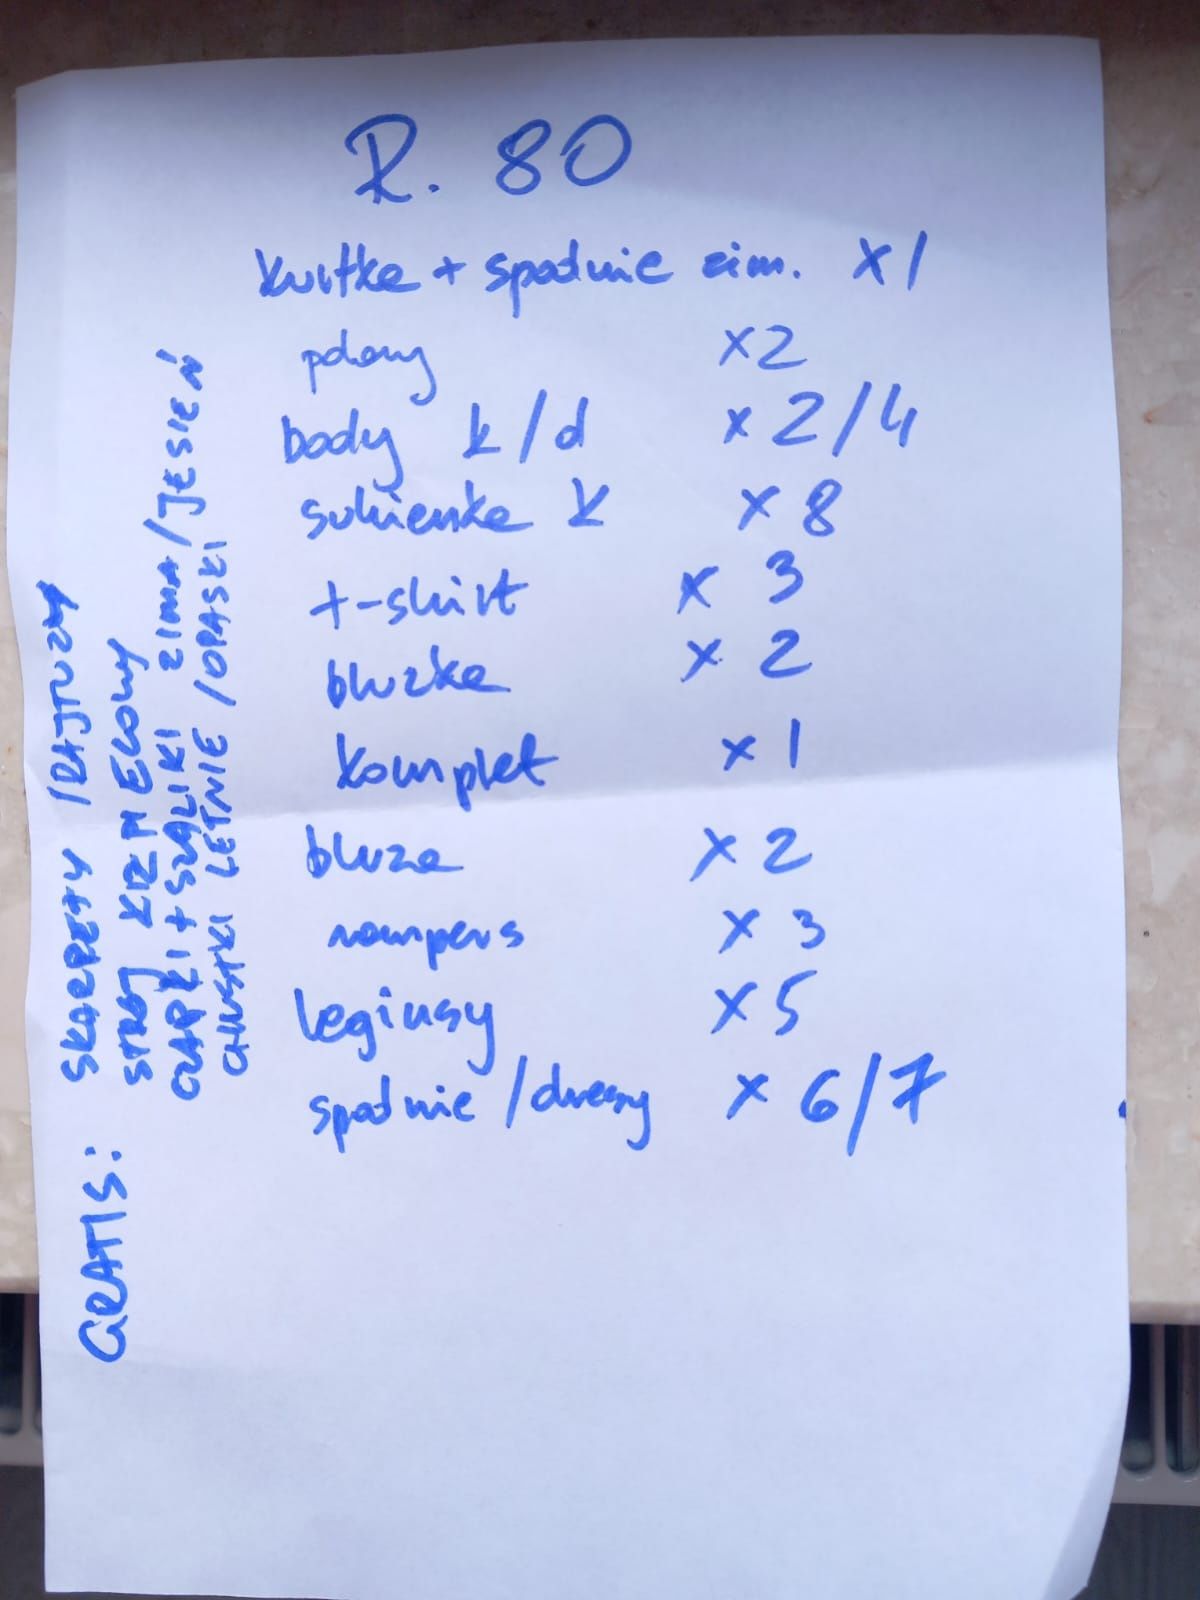 R. 80
kurtka + spodnie zim. x1
x2
body k/d x 2/4
sukienka k x 8
t-shirt x 3
bluzka x 2
komplet x 1
bluza x 2
rampers x 3
leginsy x5
spodnie / dresy x 6/7
GRATIS: SKARPETY / RAJTUZY
STRÓJ KARMELOWY
CZAPKI + SZALIKI ZIMA / JESIEŃ
CHUSTKI LETNIE / OPASKI